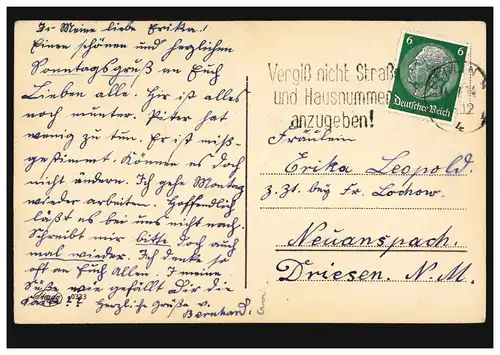 Meine liebe Erika!
Einen schönen und herzlichen
Sonntagsgruß an Euch
Lieben alle. Hir ist alles
noch munter. Piter hat
wenig zu tun. Er ist miß-
gestimmt. Können es doch
nicht ändern. Ich gehe Montag
wieder arbeiten. Hoffendlich
läßt es bei uns nicht nach.
Schreibt mir bitte doch auch
mal wieder. Ich denke so
oft an Euch Allen. I meine
Süße wie gefällt Dir die
Karte
0333
Herzliche Grüße v.
Bernhard.
Vergiß nicht Straße
und Hausnummer
anzugeben!
6 6
Deutsches Reich
12
Fräulein
Erika Leopold.
z. Zt. bey Fr. Lochow.
Neuanspach.
Driesen. N. M.